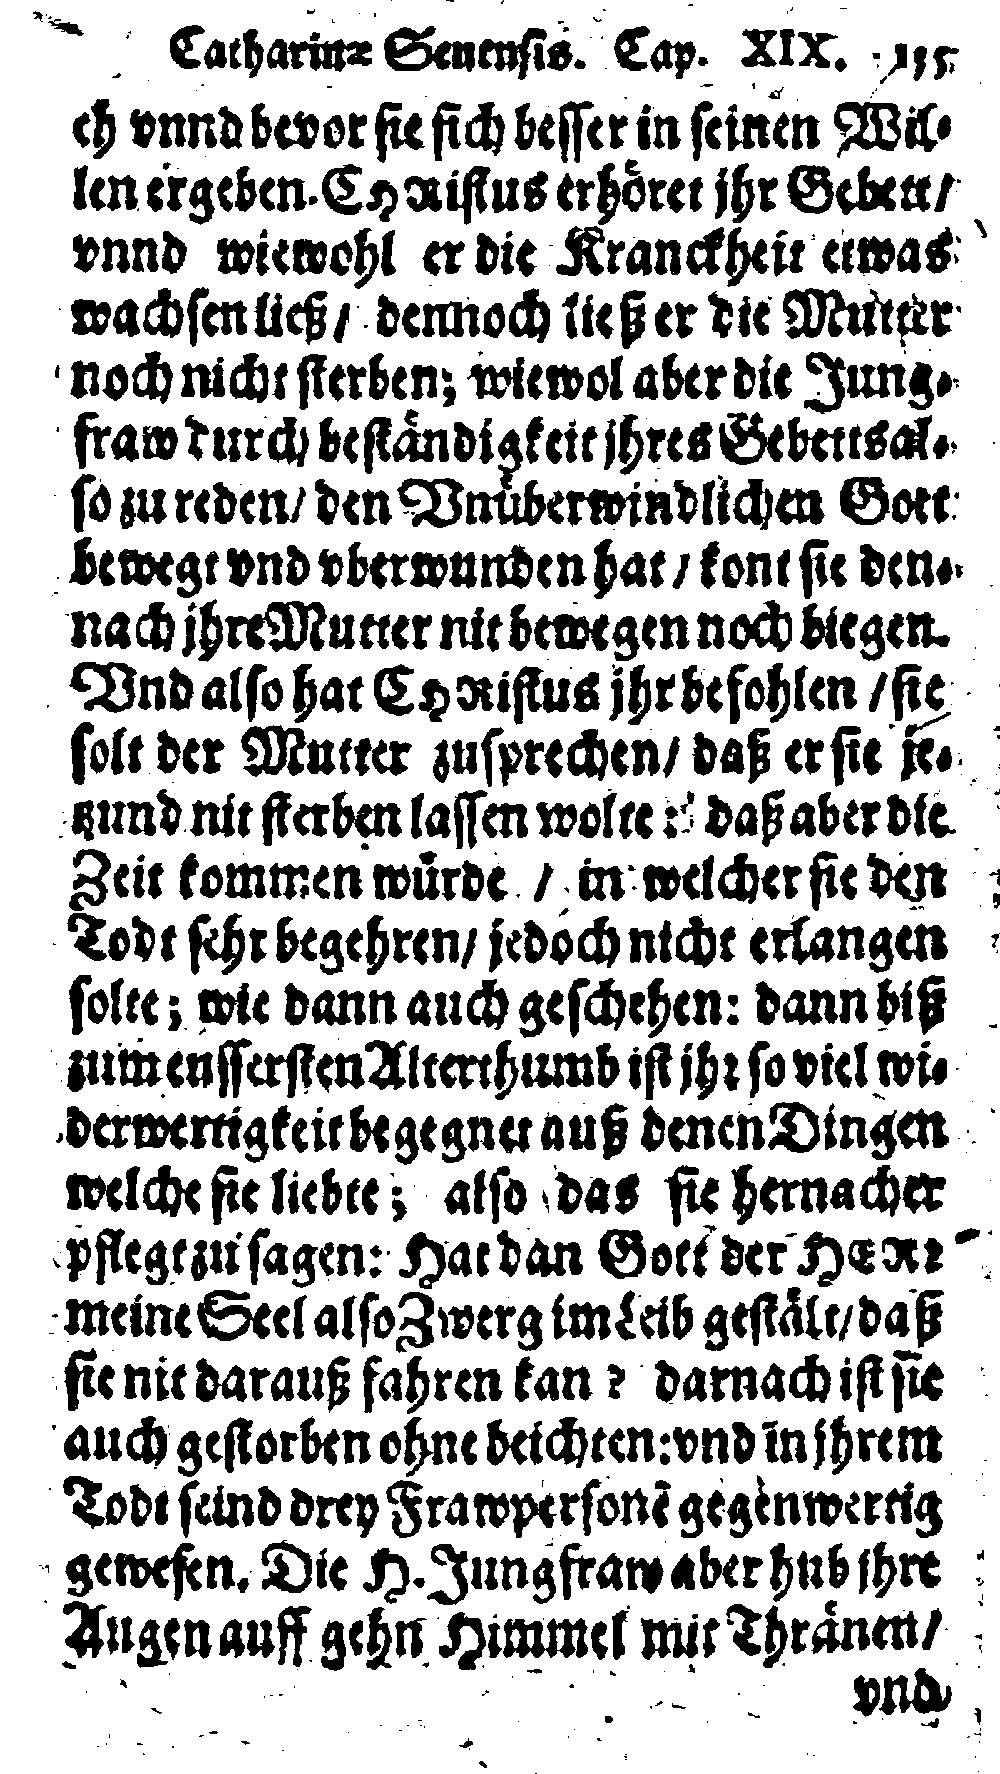 Catharinæ Senensis. Cap. XIX. 155
ch vnnd bevor sie sich besser in seinen Wil-
len ergeben. CHRistus erhöret jhr Gebett/
vnnd wiewohl er die Kranckheit etwas
wachsen ließ/ dennoch ließ er die Mutter
noch nicht sterben; wiewol aber die Jung-
fraw durch beständigkeit jhres Gebetts al-
so zu reden/ den Vnüberwindlichen Gott
bewegt vnd vberwunden hat / kont sie den-
nach jhre Mutter nit bewegen noch biegen.
Vnd also hat CHRistus jhr befohlen / sie
solt der Mutter zusprechen/ daß er sie je-
tzund nit sterben lassen wolte: daß aber die
Zeit kommen würde / in welcher sie den
Todt sehr begehren/ jedoch nicht erlangen
solte; wie dann auch geschehen: dann biß
zum eussersten Alterthumb ist jhr so viel wi-
derwertigkeit begegnet auß denen Dingen
welche sie liebte; also das sie hernacher
pflegt zu sagen: Hat dan Gott der HERr
meine Seel also Zwerg im Leib gestält/ daß
sie nit darauß fahren kan ? darnach ist sie
auch gestorben ohne beichten: vnd in jhrem
Todt seind drey Frawpersonē gegenwertig
gewesen. Die H. Jungfraw aber hub jhre
Augen auff gehn Himmel mit Thränen/
vnd